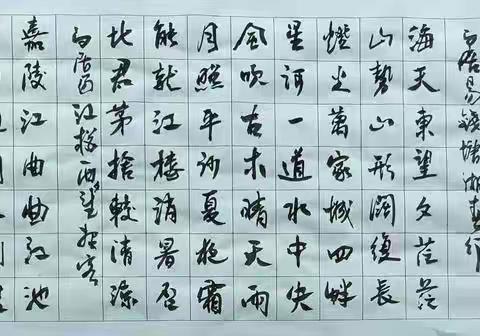 白居易錢塘湖春行
海天東望夕茫茫
山勢山形闊復長
燈火萬家城四畔
星河一道水中央
風吹古木晴天雨
月照平沙夏夜霜
能就江樓消暑否
比君茅捨較清涼
白居易江樓夕望招客
嘉陵江曲曲江池